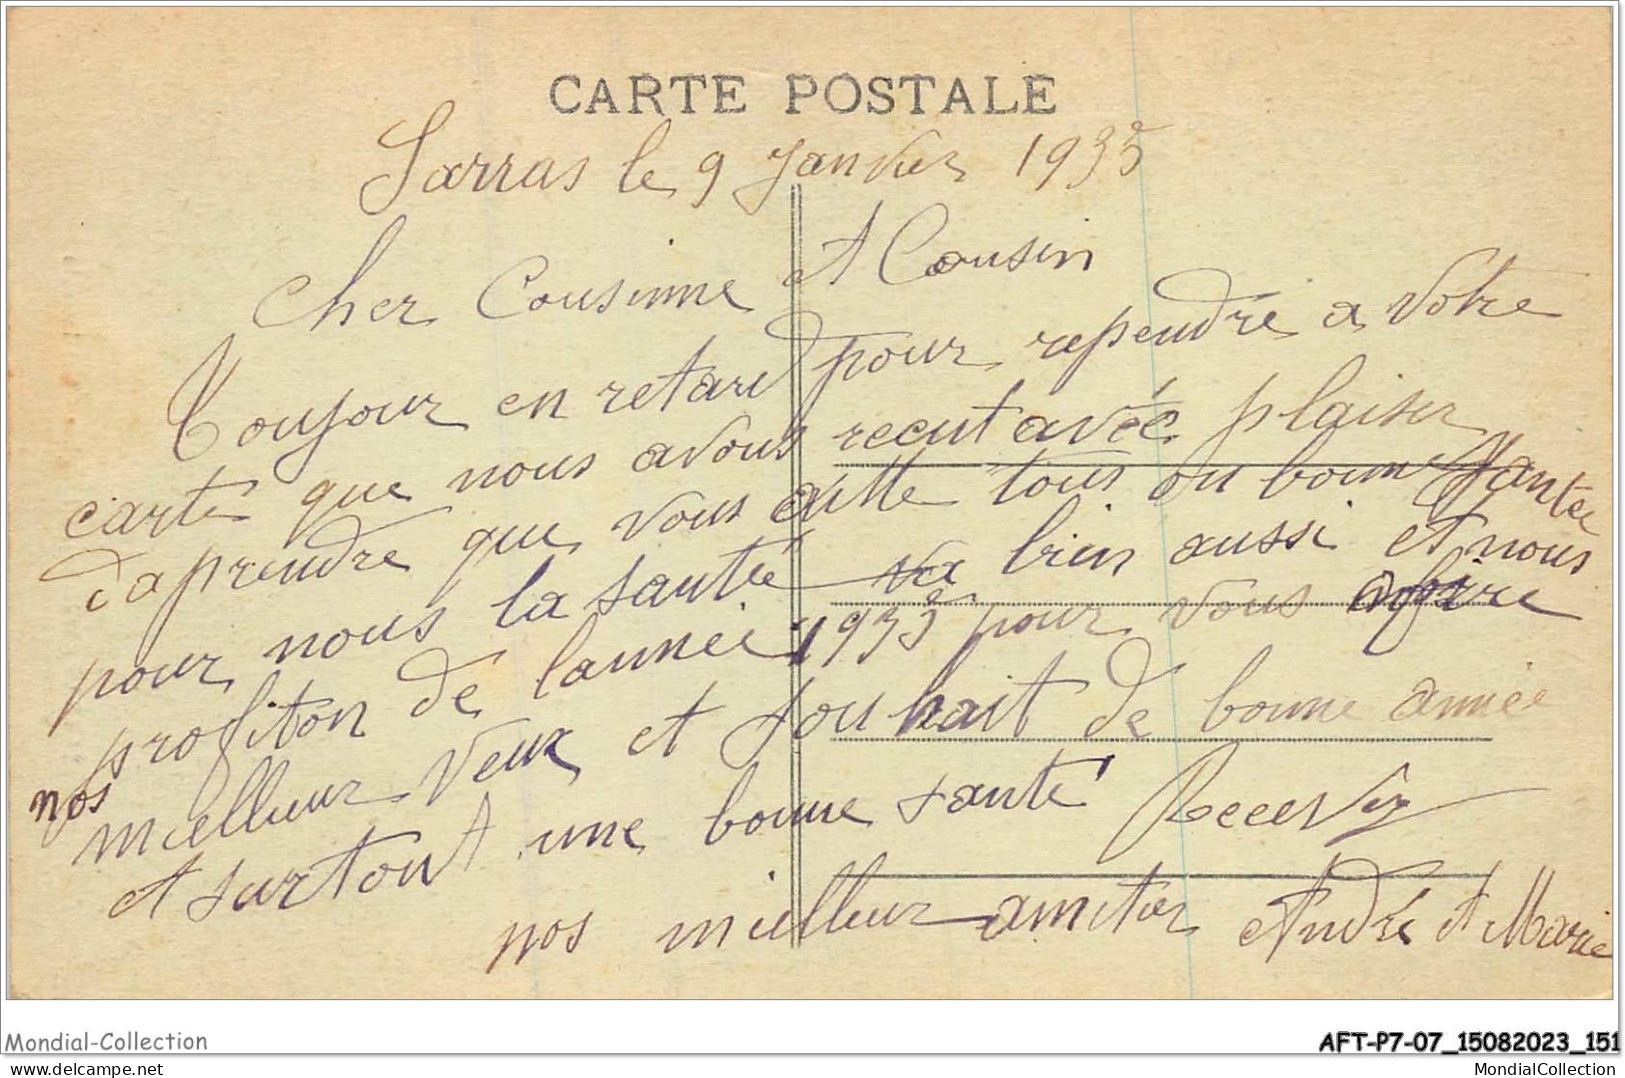 CARTE POSTALE
Sarras le 9 Janvier 1935
Cher Cousinne et Cousin
Toujour en retard pour rependre a votre
carte que nous avous recut avec plaiser
daprendre que vous aitte tous en bonne santée
pour nous la santée va bien aussi et nous
profiton de lannée 1935 pour vous ofire
nos mielleur veux et souhait de bonne année
et surtout une bonne santé Recevez
nos mielleur amitier André et Marie
Mondial-Collection
AFT-P7-07_15082023_151
delcampe.net
MondialCollection